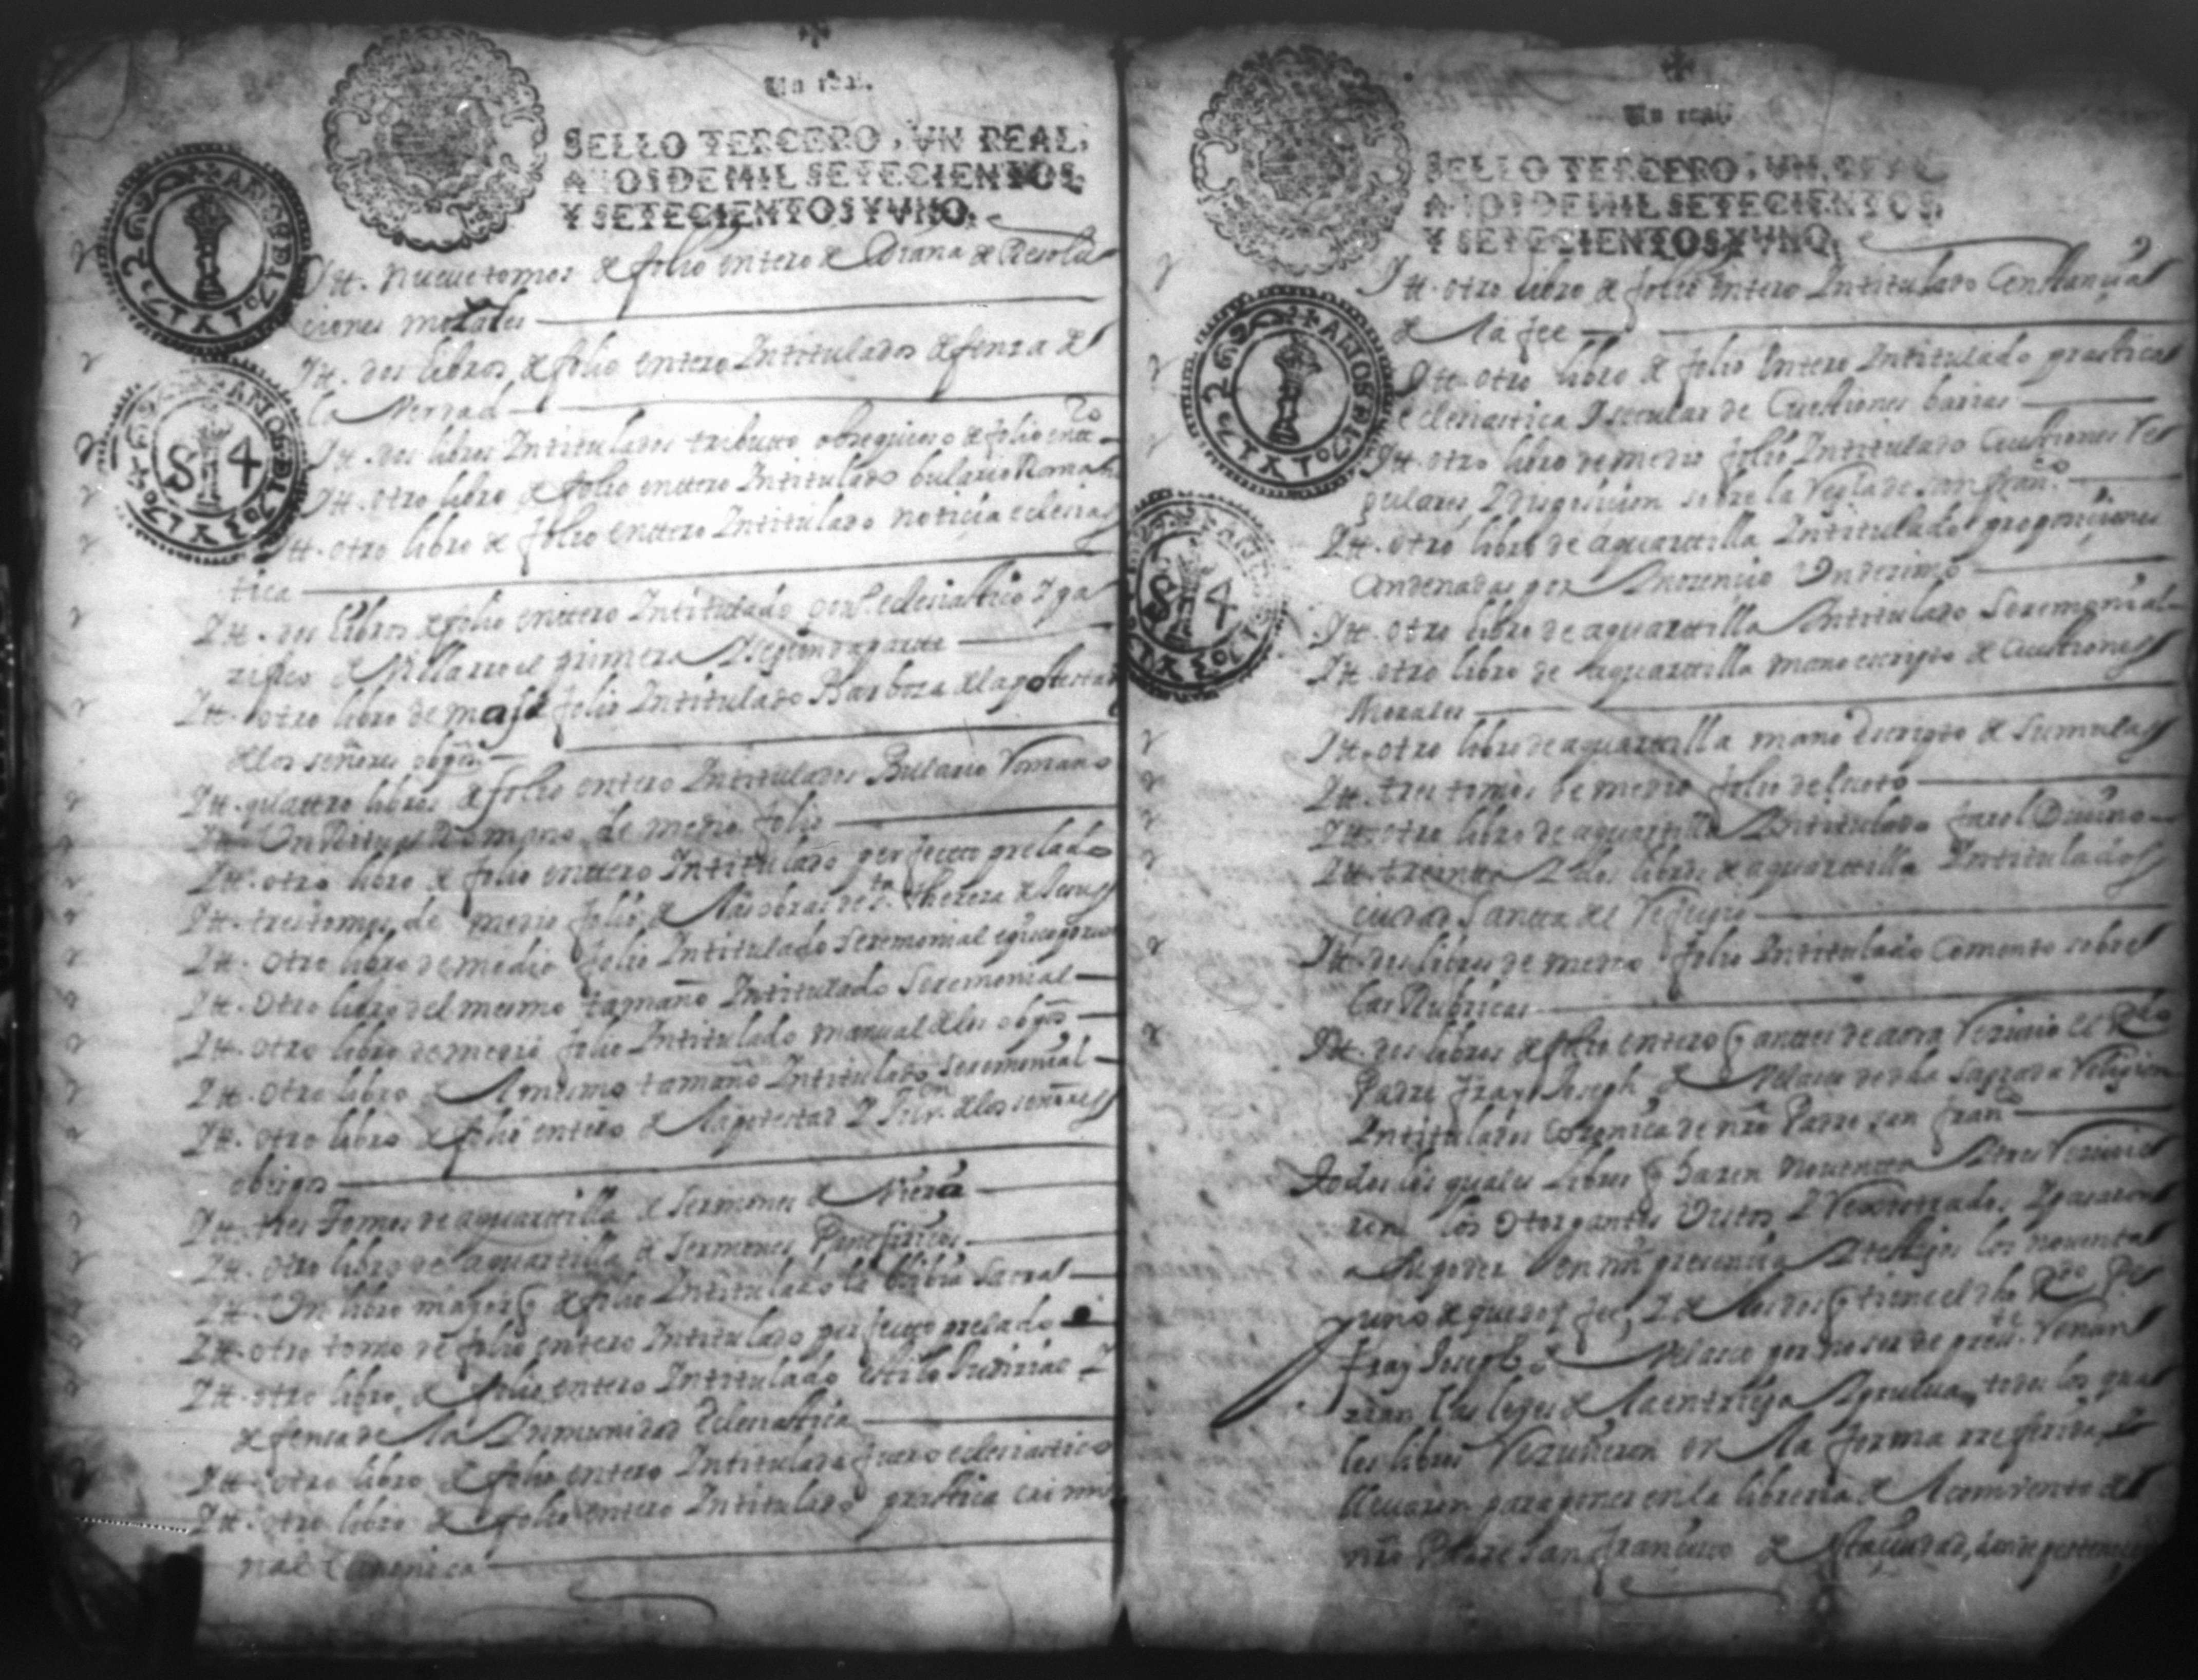 Un real.
SELLO TERCERO, VN REAL,
AÑOS DE MIL SETECIENTOS,
Y SETECIENTOS Y VNO.
Ytt. nueve tomos de folio entero de Diana de Resolu
ciones morales
Ytt. dos libros de folio entero Intitulados defensa de
la Verdad
Ytt. dos libros Intitulados tributto obsequioso de folio entº
Ytt. otro libro de folio enttero Intitulado bulario Romano
Ytt. otro libro de folio enttero Intitulado noticia eclesias
tica
Ytt. dos libros de folio enttero Intitulado eclesiastico Y pa
zifico de Villarroel primera Y segunda partte
Ytt. otro libro de folio Intitulado Barboza de la potestad
de los señores obpos
Ytt. quattro libros de folio entero Intitulados Bulario Romano
Ytt. Un Ritual Romano de medio folio
Ytt. otro libro de folio enttero Intitulado perfecto prelado
Ytt. tres tomos de medio folio de las obras de sta. theresa de Jesus
Ytt. Otro libro de medio folio Intitulado Seremonial episcoporum
Ytt. Otro libro del mesmo tamaño Intitulado Seremonial
Ytt. otro libro de medio folio Intitulado manual de los obpos
Ytt. Otro libro de el mesmo tamaño Intitulado Seremonial
Ytt. Otro libro de folio entero de la potestad Y de los señores
obispos
Ytt. tres Tomos de aquarttilla de Sermones de Viera
Ytt. Otro libro de aquartilla de Sermones Panegiricos
Ytt. Un libro mayor q de folio Intitulado la biblia Sacra
Ytt. otro tomo de folio entero Intitulado perfecto prelado
Ytt. otro libro de folio entero Intitulado estilo Judicial Y
defensa de la Inmunidad Eclesiastica
Ytt. otro libro de folio entero Intitulado fuero eclesiastico
Ytt. otro libro de folio entero Intitulado practica crimi
nal Canonica
Un real.
SELLO TERCERO, VN REAL
AÑOS DE MIL SETECIENTOS,
Y SETECIENTOS Y VNO.
Ytt. otro libro de folio entero Intitulado Constancia
de la fee
Ytt. otro libro de folio Entero Intitulado practica
eclesiastica Y secular de Cuestiones barias
Ytt. otro libro de medio folio Intitulado Cuestiones Re
gulares Y exposicion sobre la Regla de san Franco.
Ytt. otro libro de aquarttilla Intitulado proposiciones
Condenadas por Ynosencio Undesimo
Ytt. otro libro de aquarttilla Intitulado Seremonial
Ytt. otro libro de aquarttilla mano escripto de Cuestiones
Morales
Ytt. otro libro de aquarttilla mano escripto de Sumulas
Ytt. tres tomos de medio folio
Ytt. otro libro de aquarttilla Intitulado farol Divino
Ytt. treinta Y dos libros de aquarttilla Intitulados
ciudad Santa del Refugio
Ytt. dos libros de medio folio Intitulado Comento sobre
las Rubricas
Ytt. dos libros de folio entero q antes de aora Resivio el Rdo
Padre fray Joseph de Velasco de dha Sagrada Religion
Intitulados Coronica de nro Padre san franco
Todos los quales Libros q hazen noventa Y tres Resivie
ron los Otorgantes Vistos Y Rexistrados, Y pasaron
a su poder en mi presencia Y testigos los noventa
Y uno de que doy fee, Y de los dos q tiene el dho Rdo Pe
fray Joseph de Velasco por no ser de prette. Renun
zian las leyes de la entrega Y prueva, todos los qua
les libros Rezivieron en la forma rreferida
llevaron para poner en la libreria de el comvento de
nro Padre san francisco de esta ciudad, donde